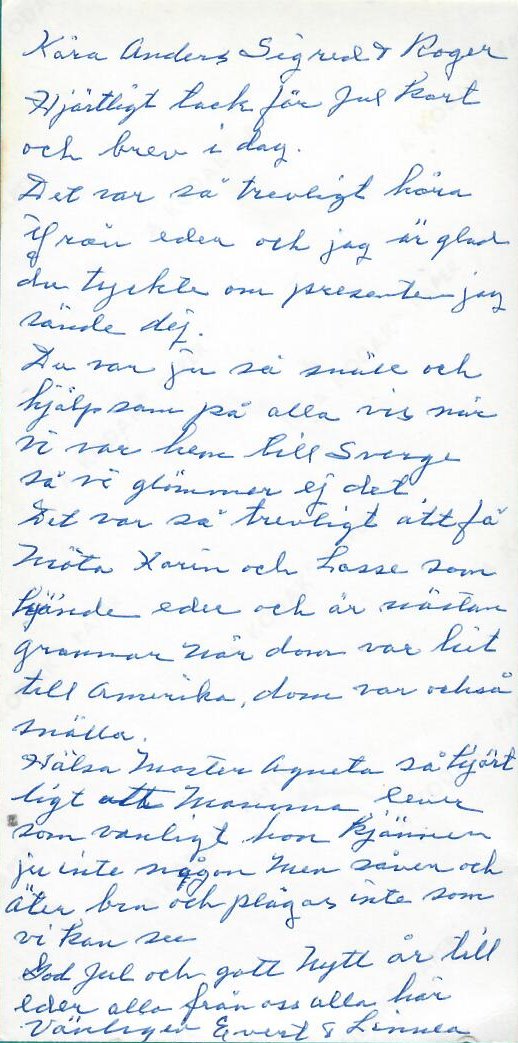 Kära Anders Sigred & Roger
Hjärtligt tack för Jul Kort
och brev i dag.
Det var så trevligt höra
ifrån eder och jag är glad
du tyckte om presenten jag
sände dej.
Du var ju så snäll och
hjälpsam på alla vis när
vi var hem till Sverge
så vi glömmer ej det
Det var så trevligt att få
möta Karin och Lasse som
kjände eder och är nästan
grannar när dom var hit
till Amerika, dom var också
snälla.
Hälsa Moster Agneta så hjärt
ligt att Mamma lever
som vanligt hon kjänner
ju inte någon Men såver och
äter bra och plågas inte som
vi kan see
God Jul och gott Nytt år till
eder alla från oss alla här
Vänligen Evert & Linnea